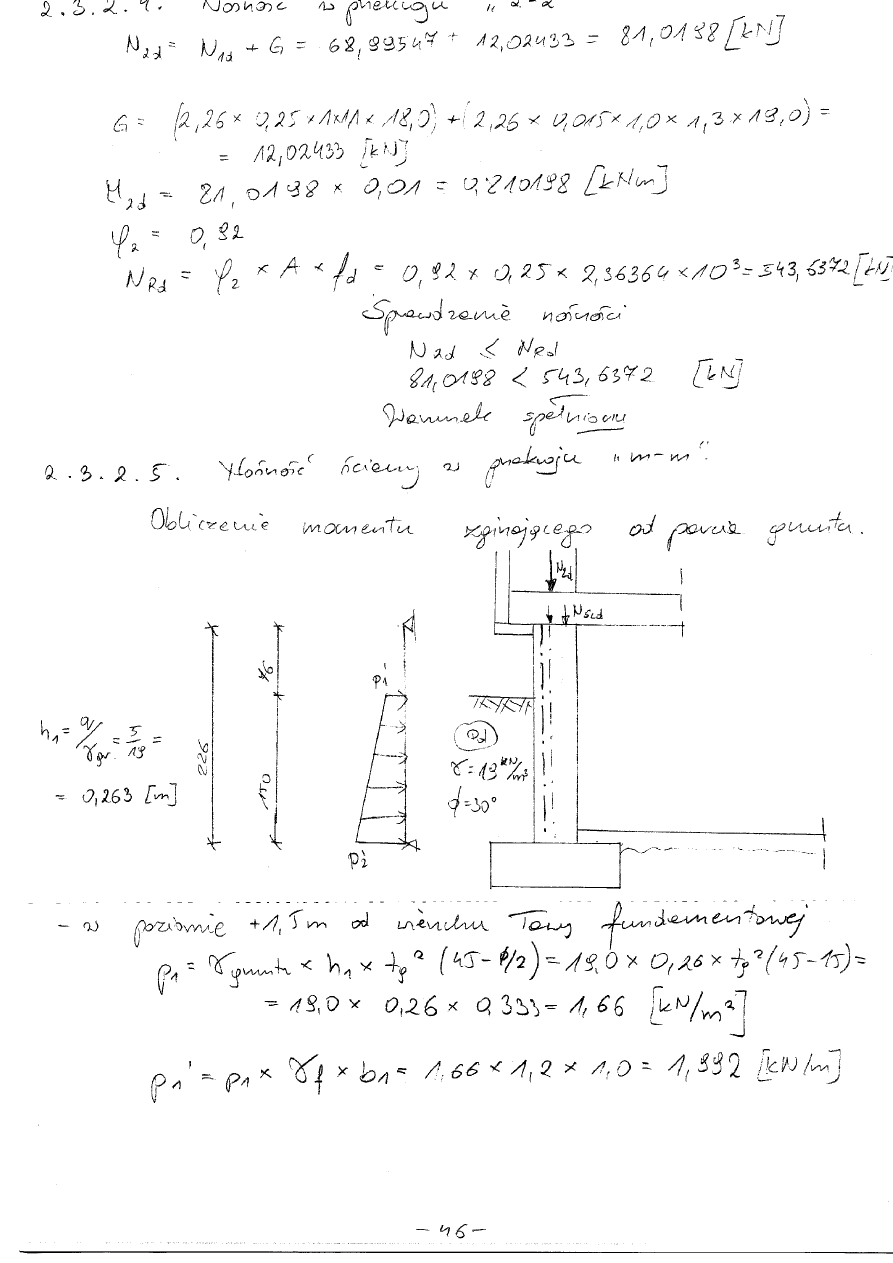 2.3.2.4. Nośność w przekroju „2-2"
N2d = N1d + G = 68,99547 + 12,02433 = 81,0198 [kN]
G = (2,26 × 0,25 × 1 × 1,1 × 18,0) + (2,26 × 0,015 × 1,0 × 1,3 × 19,0) =
= 12,02433 [kN]
M2d = 81,0198 × 0,01 = 0,810198 [kNm]
φ2 = 0,92
NRd = φ2 × A × fd = 0,92 × 0,25 × 2,36364 × 10³ = 543,6372 [kN]
Sprawdzenie nośności
N2d < NRd
81,0198 < 543,6372 [kN]
Warunek spełniony
2.3.2.5. Nośność ściany w przekroju „m-m".
Obliczenie momentu zginającego od parcia gruntu.
N2d
NSLd
76
p1'
h1 = q/γgr. = 5/19 =
= 0,263 [m]
226
150
Pd
γ = 19 kN/m³
ϕ = 30°
p2'
- w poziomie +1,5m od wierzchu ławy fundamentowej
p1 = γgruntu × h1 × tg² (45 - ϕ/2) = 19,0 × 0,26 × tg² (45 - 15) =
= 19,0 × 0,26 × 0,333 = 1,66 [kN/m²]
p1' = p1 × γf × b1 = 1,66 × 1,2 × 1,0 = 1,992 [kN/m]
- 46 -